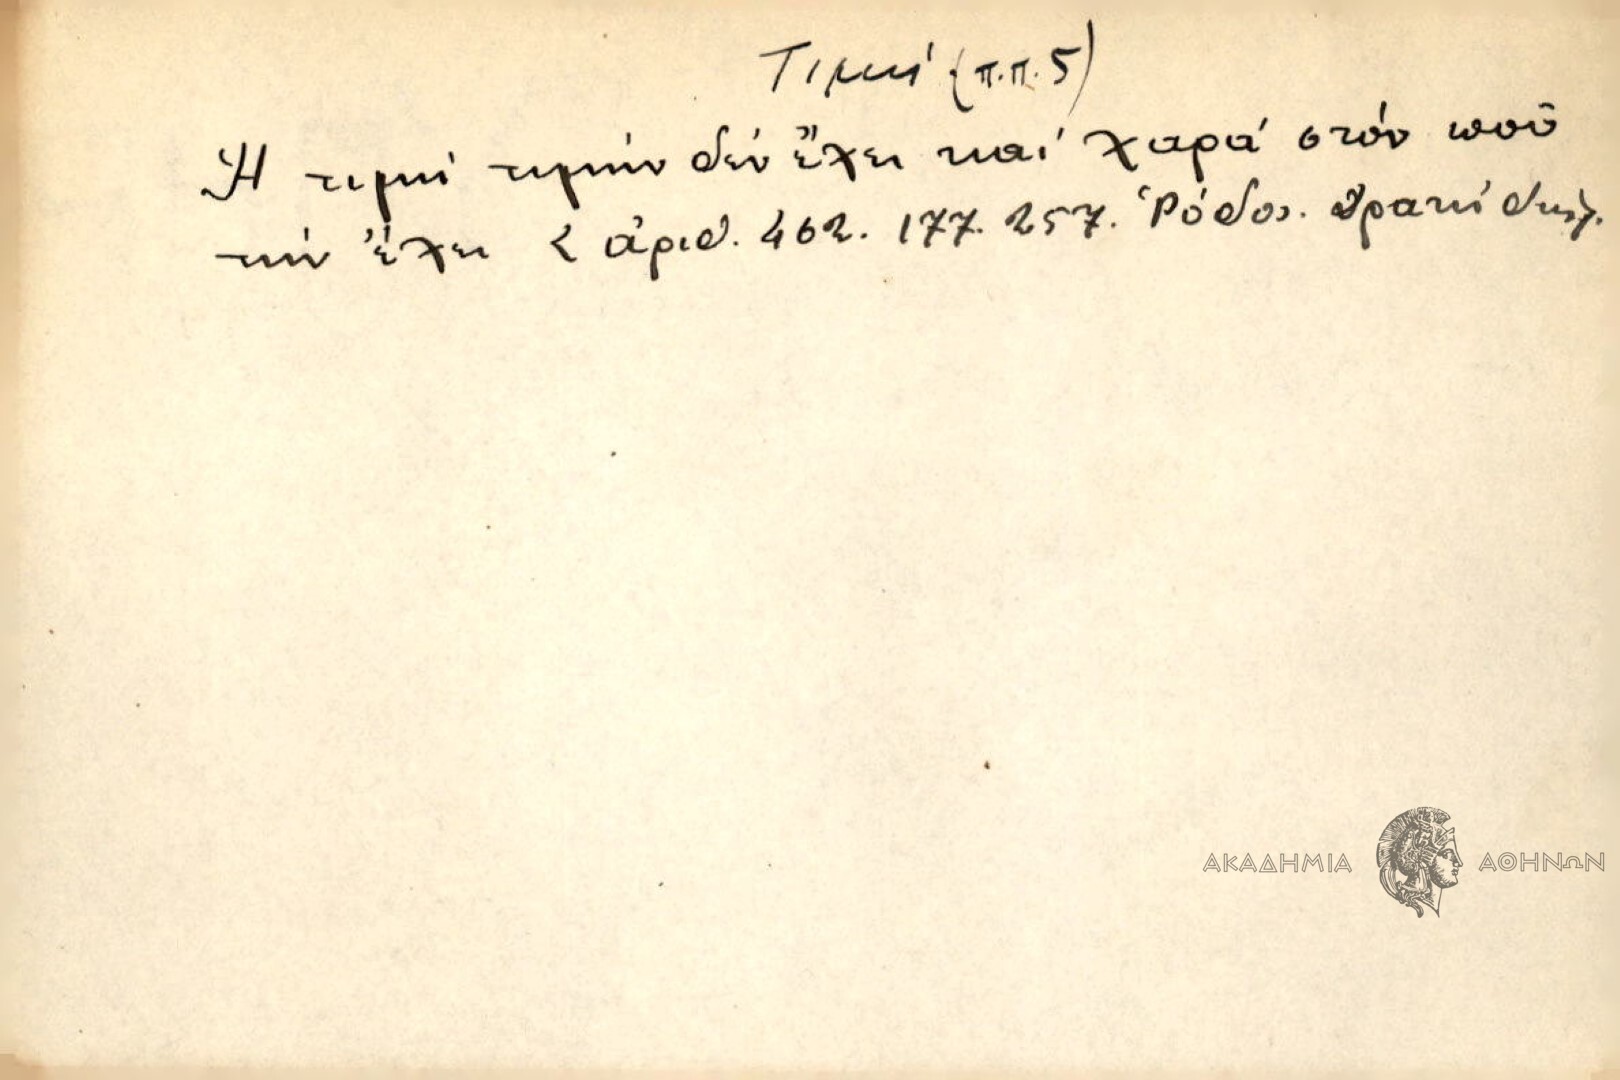 Τιμή (π.π. 5)
Ἡ τιμή τιμήν δέν ἔχει καί χαρά στόν ποῦ
τήν ἔχει Σ ἀριθ. 462. 177. 257. Ῥόδος.
ΑΚΑΔΗΜΙΑ ΑΘΗΝΩΝ